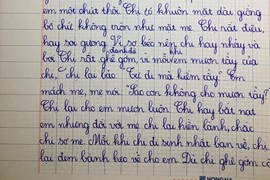 em một chút thôi. Chị có khuôn mặt dài giống
bố chứ không tròn như mặt mẹ. Chị rất điệu,
hay soi gương. Vì sợ béo nên chị hay nhảy và
đánh đá khi
bơi. Chị rất ghê gớm vì mỗi em mượn tẩy của
chị, chị lại bảo "Tự đi mà kiếm tẩy". Em
mách mẹ, mẹ nói "Sao con không cho em mượn tẩy?"
Chị lại cho em mượn luôn. Chị hay bắt nạt
em nhưng đối với mẹ chị lại hiền lành, chắc
chị sợ mẹ. Mỗi khi chị đi sinh nhật bạn về, chị
lại đem bánh kẹo về cho em. Dù chị ghê gớm
HỒNG HÀ